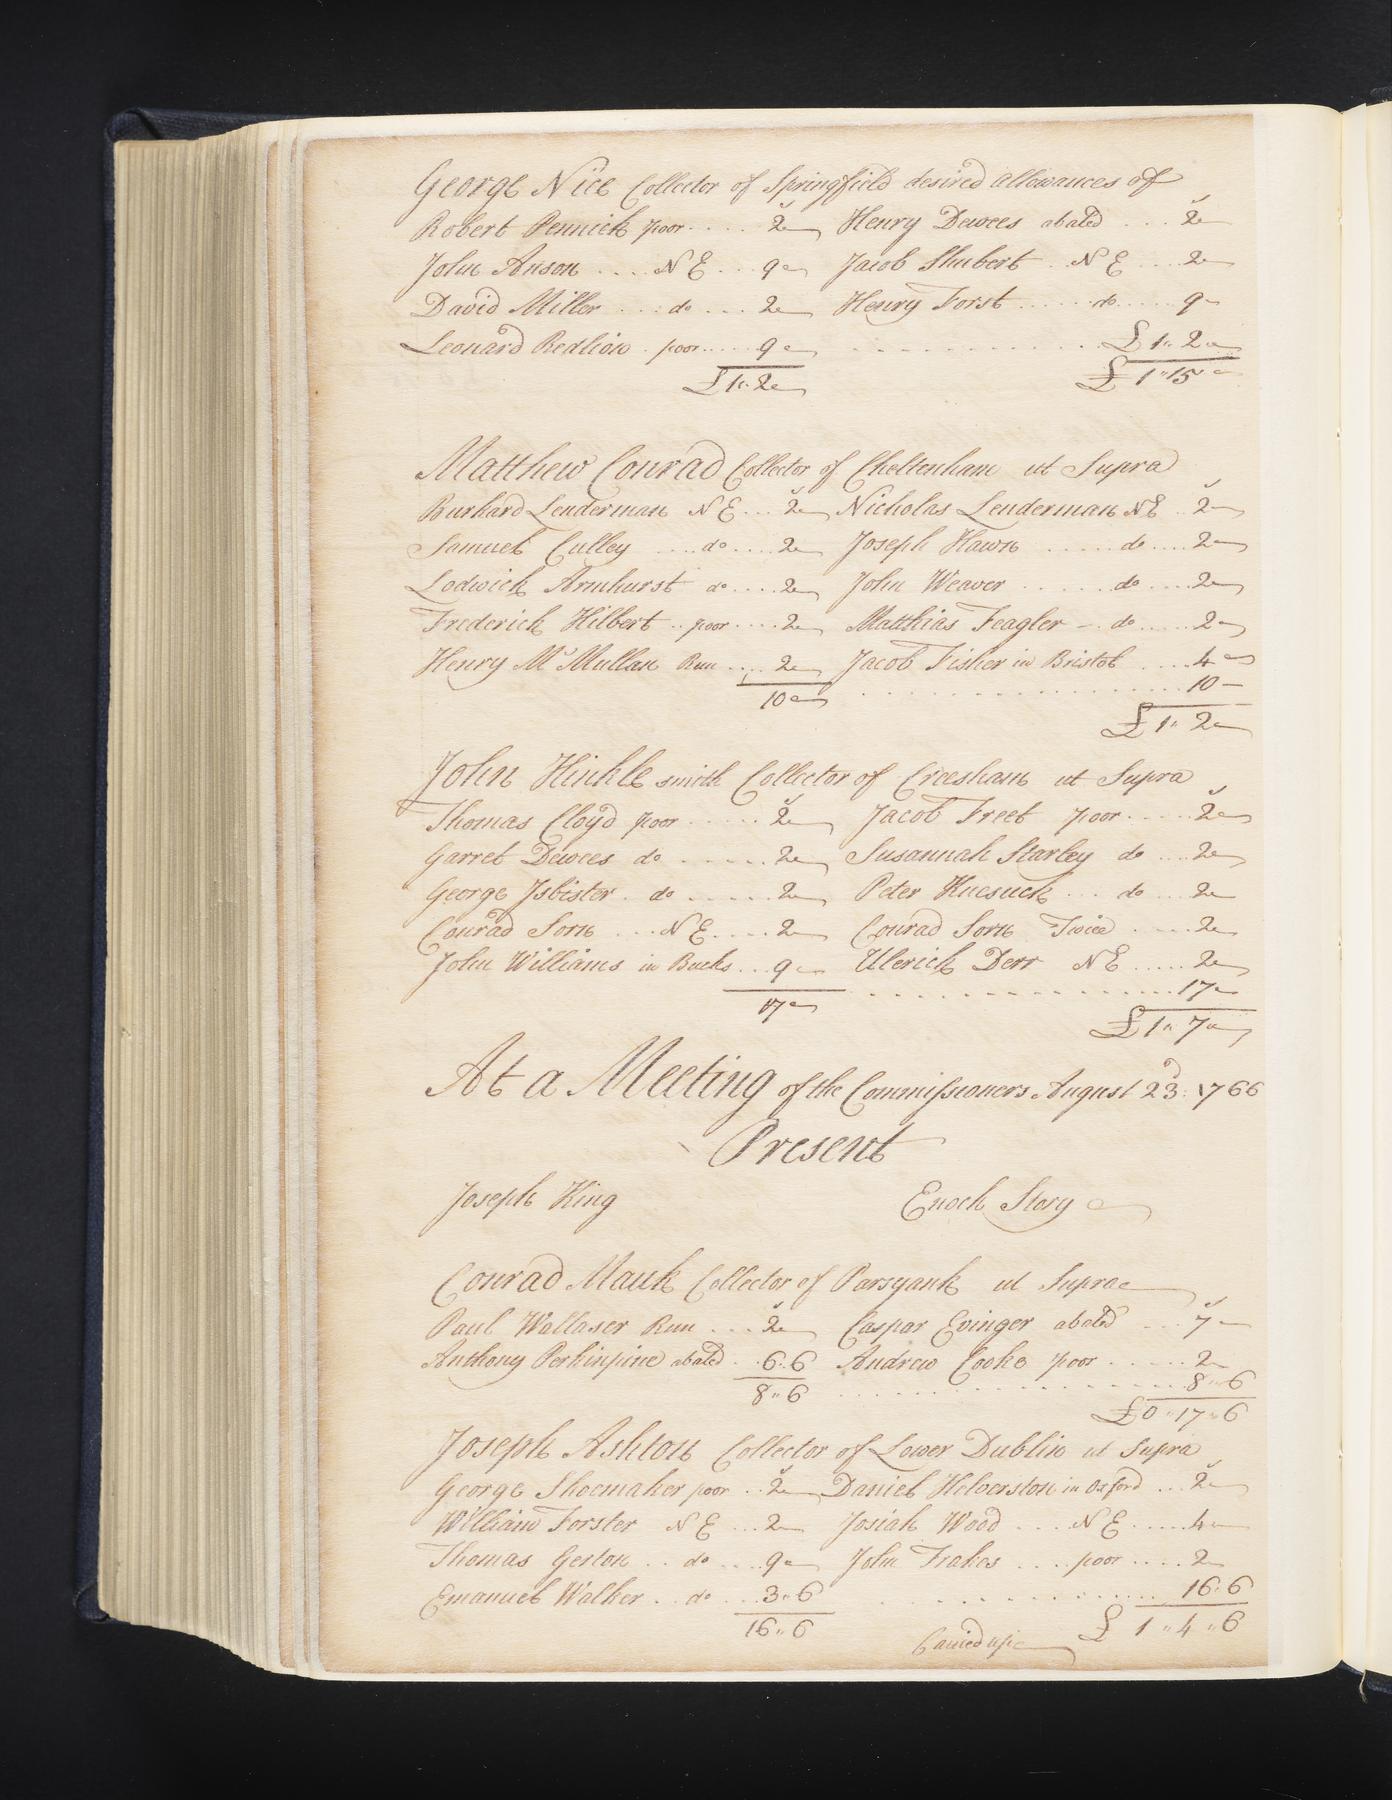 George Nice Collector of Springfield desired allowances of
Robert Pennick poor .... 2 Henry Dewees abated ... 2
John Anson .... N E ... 9 Jacob Shubert .. N E ... 2
David Miller ... do ... 2 Henry Forst ...... do ..... 9
Leonard Redlion . poor ..... 9 ............ £ 1" 2
£ 1" 2 £ 1" 15
Matthew Conrad Collector of Cheltenham ut Supra
Burkard Lenderman N E ... 2 Nicholas Lenderman N E .. 2
Samuel Culley .... do .... 2 Joseph Hawn ..... do .... 2
Lodwick Armhurst do .... 2 John Weaver ...... do .... 2
Frederick Hilbert .. poor .... 2 Matthias Feagler - . do ..... 2
Henry Mc Mullan Run .... 2 Jacob Fisher in Bristol .... 4
10 ............ 10
£ 1" 2
John Hinkle smith Collector of Creesham ut Supra
Thomas Cloyd poor ..... 2 Jacob Freet poor .... 2
Garret Dewees do ...... 2 Susannah Starkey do ... 2
George Isbister . do ...... 2 Peter Kucsuck ... do ... 2
Conrad Sorn ... N E .... 2 Conrad Sorn Twice .... 2
John Williams in Bucks ... 9 Ulerick Derr N E ..... 2
17 ............ 17
£ 1" 7
At a Meeting of the Commissioners August 23d: 1766
Present
Joseph King Enoch Story
Conrad Mauk Collector of Passyank ut Supra
Paul Wallaser Run ... 2 Caspar Evinger abated ... 7
Anthony Perkinpine abated .. 6:6 Andrew Cooke poor ...... 2
8"6 ............ 8"6
£0"17"6
Joseph Ashton Collector of Lower Dublin ut Supra
George Shoemaker poor .. 2 Daniel Helverston in Oxford ... 2
William Forster N E ... 2 Josiah Wood .... N E ..... 4
Thomas Gerton .. do ... 9 John Frakes .... poor .... 2
Emanuel Walker .. do ... 3"6 ............ 16"6
16"6 £ 1"4"6
Carried up